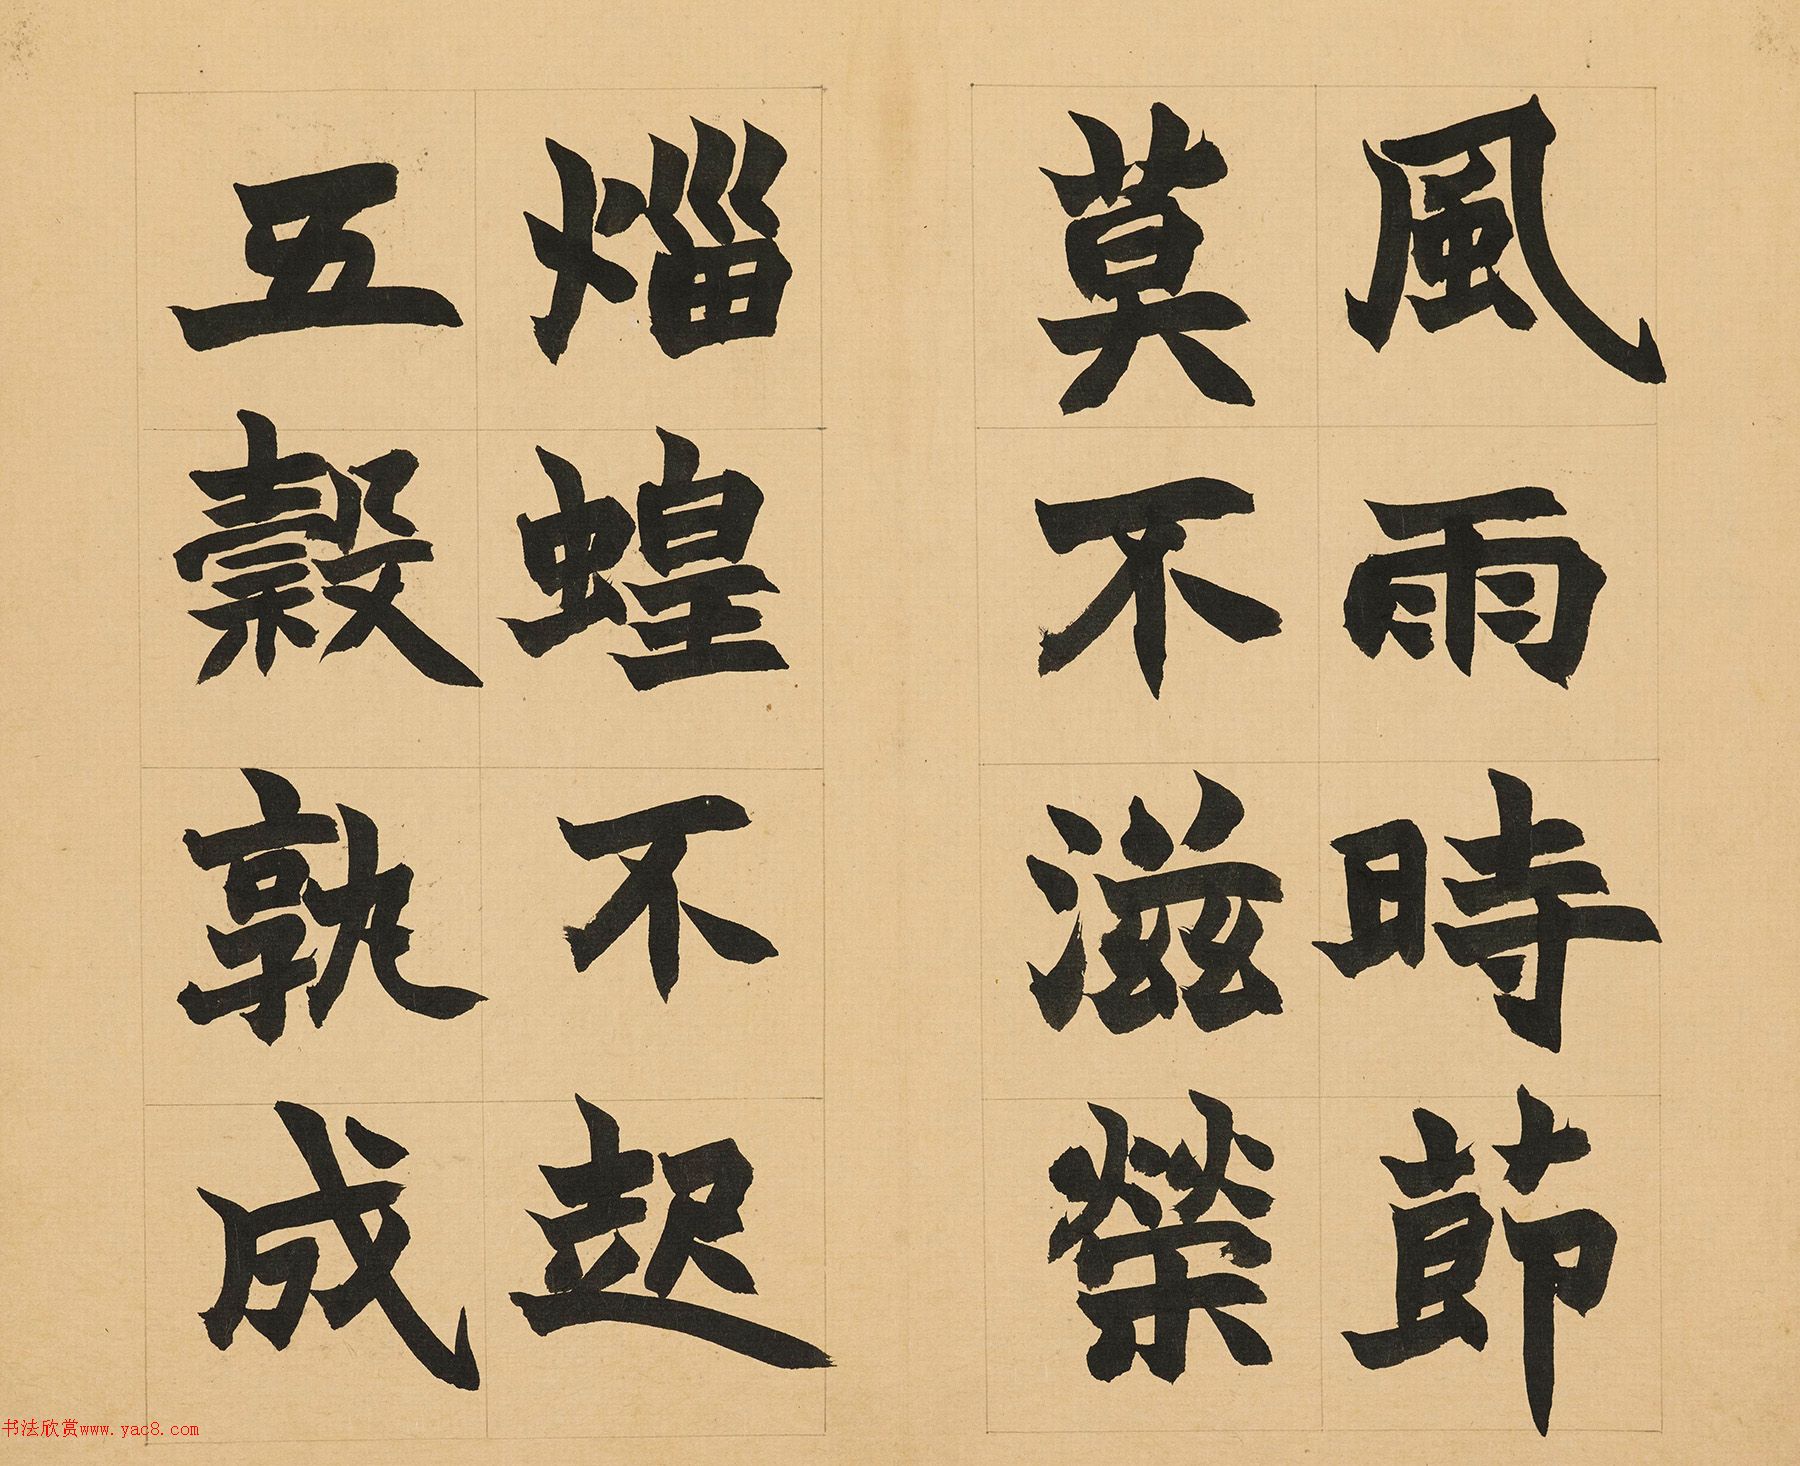 風雨時節
莫不滋榮
蝗不起
五穀孰成
书法欣赏www.yac8.com